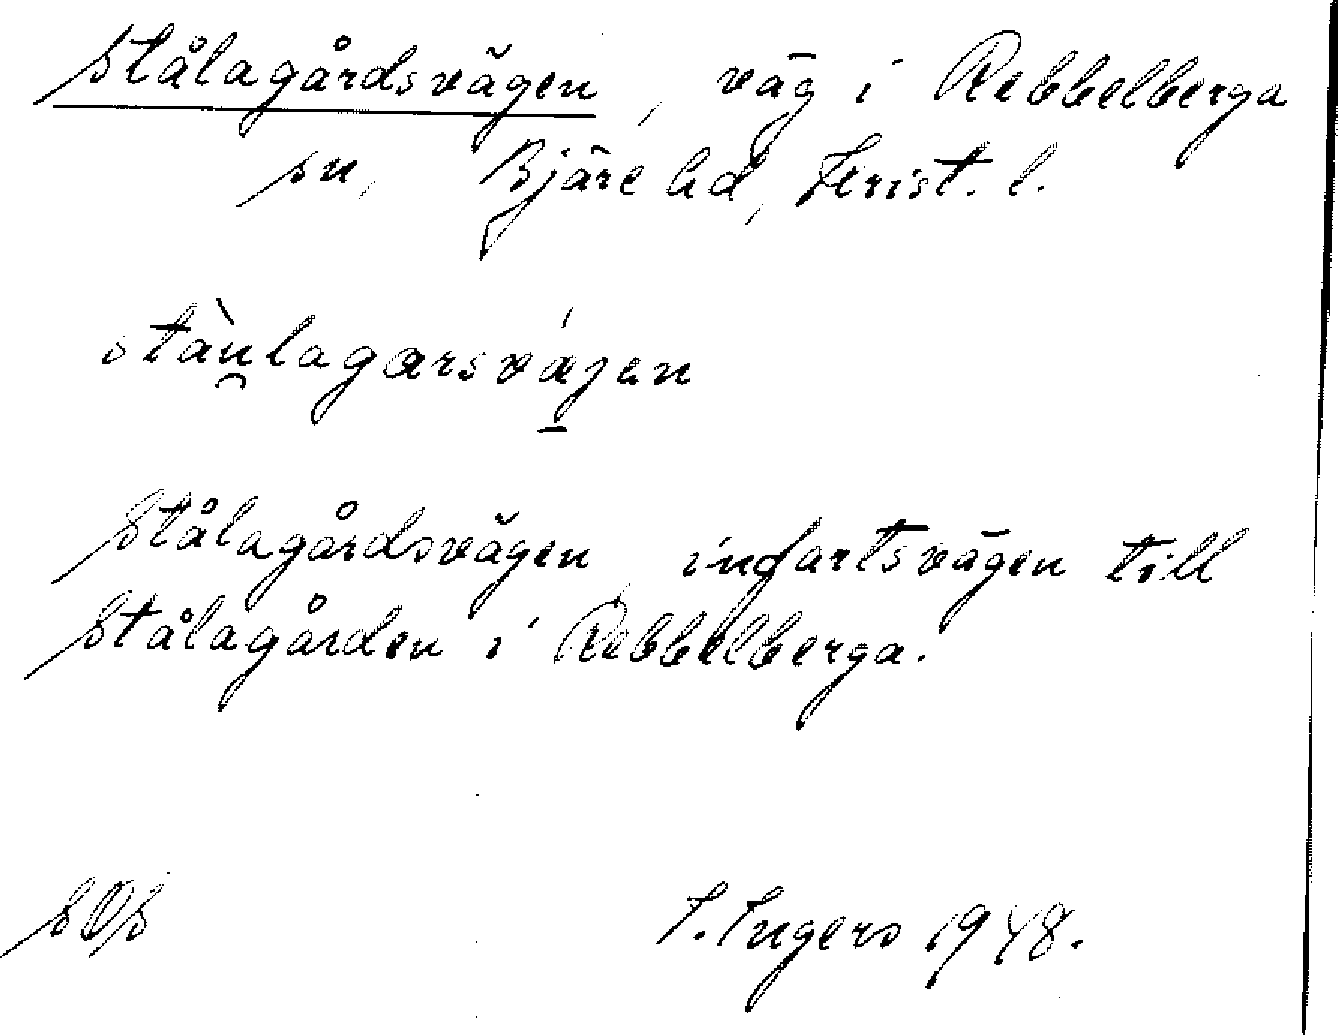 Stålagårdsvägen, väg i Rebbelberga
sn, Bjäre hd, Krist. l.
stàu̯lagarsvá̱jen
Stålagårdsvägen, infartsvägen till
Stålagården i Rebbelberga.
SOS I. Ingers 1948.